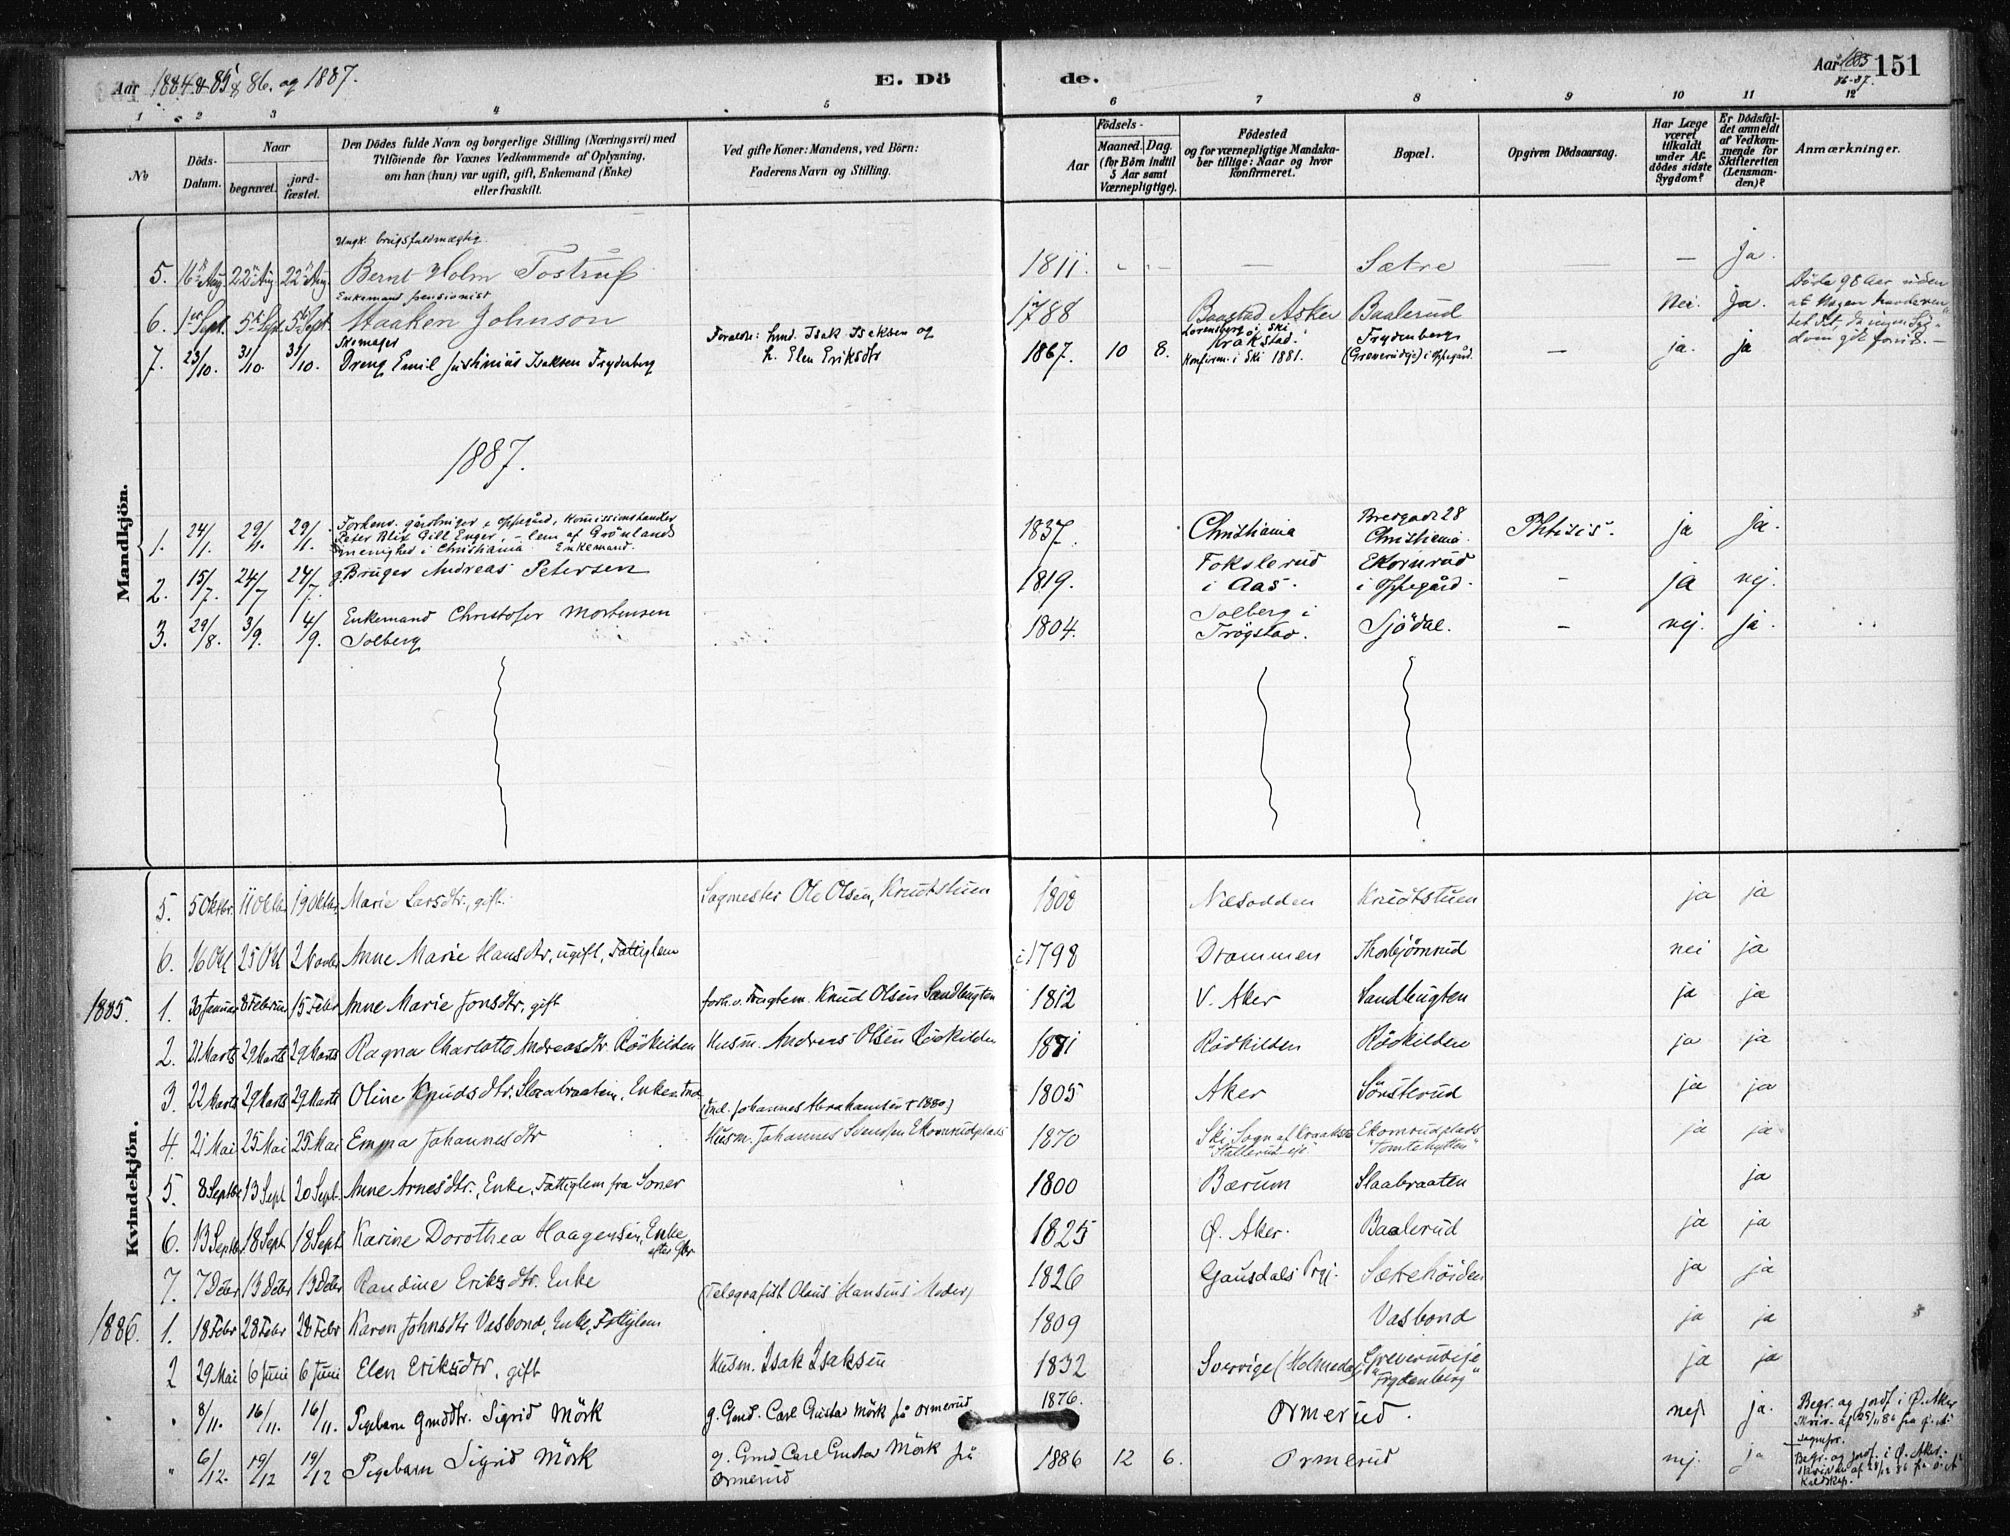 Aar 1884 & 85 & 86. og 1887.
E. Dö
de.
Aar 1885
86-87.
151
1 2 3 4 5 6 7 8 9 10 11 12
No
Döds-Datum.
Naar
begravet.
jord-fæstet.
Den Dödes fulde Navn og borgerlige Stilling (Næringsvei) med
Tilföiende for Voxnes Vedkommende af Oplysning,
om han (hun) var ugift, gift, Enkemand (Enke)
eller fraskilt.
Ved gifte Koner: Mandens, ved Börn:
Faderens Navn og Stilling.
Aar
Födsels-
Maaned. Dag.
(for Börn indtil
5 Aar samt
Værnepligtige).
Födested
og for værnepligtige Mandska-
ber tillige: Naar og hvor
konfirmeret.
Bopæl.
Opgiven Dödsaarsag.
Har Læge
været
tilkaldt
under Af-
dödes sidste
Sygdom?
Er Dödsfal-
det anmeldt
af Vedkom-
mende for
Skifteretten
(Lensman-
den)?
Anmærkninger.
Mandkjön.
Ungk. brugsfuldmægtig
5. 16 Aug 22 Aug 22 Aug. Bernt Holm Tostrup 1811. - - - Sætre - - Ja.
Enkemand pensionist
6. 1 Sept. 5 Sept 5 Sept. Haaken Johnson 1788 Baastad Asker Baalerud Nei. Ja.
Döde 98 Aar uden
7. 23/10. 31/10. 31/10. Skomager
Dreng Emil Justinius Isaksen Frydenberg
Forældr: hmd. Isak Isaksen og
h. Elen Eriksdtr
1867. 10 8. Lorensberg i Ski
Kråkstad.
Konfirm. i Ski 1881.
Frydenberg
(Greverudeje) i Oppegård.
- ja. ja
1887.
1. 24/1. 29/1. 29/1. Forhenv. gårdbruger i Oppegård, Kommissionshandler
Peter Blix Gill Enger, - lem af Grönlands
menighed i Christiania. Enkemand.
1837. Christiania Bredgade 28
Christiania. Phtisis. ja ja.
2. 15/7. 24/7 24/7. g. Bruger Andreas Petersen 1819. Fokslerud
i Aas. Ekornrud
i Oppegård. - ja nej.
3. 29/8. 3/9. 4/9. Enkemand Christofer Mortensen
Solberg 1804. Solberg i
Trögstad. Sjödal. - nej. ja.
Kvindekjön.
5. 5 Oktbr. 11 Oktbr 19 Oktbr. Marie Larsdtr., gift. Sagmester Ole Olsen, Knudstuen 1808 Næsodden Knudstuen ja ja
6. 16 Okt 25 Okt 2 Novbr. Anne Marie Hansdtr, ugift, Fattiglem i 1798 Drammen Thorbjörnrud nei ja
1885. 1. 30 Januar 8 Februar 15 Febr Anne Marie Jonsdtr, gift forh. v. Knud Olsen Sandbugten 1812 V. Aker Sandbugten ja ja
2. 21 Marts 29 Marts 29 Marts Ragna Charlotte Andreasdtr Rödkilden Husm. Andreas Olsen Rödkilden 1881 Rödkilden Rödkilden ja ja
3. 22 Marts 29 Marts 29 Marts Oline Knudsdtr. Slaabraaten, Enke Ind.
(Ind. Johannes Abrahamsen † 1880) 1805 Aker Sönsterud ja ja
4. 21 Mai 25 Mai 25 Mai Emma Johannesdtr Husm. Johannes Svensen Ekornrudplads 1870 Ski Sogn af Kraakstad
"Stallerud eje" Ekornrudplads
"Tomtehytten" ja ja
5. 8 Septbr 13 Sept 20 Sept. Anne Arnesdtr., Enke, Fattiglem fra Soner 1800 Bærum Slaabraaten ja
6. 13 Septbr 18 Sept 18 Sept Karine Dorothea Haagensen, Enke 1825 Ø. Aker. Baalerud ja ja
7. 7 Debr 13 Debr 13 Debr Randine Eriksdtr. Enke (Telegrafist Olaus Hansens Moder) 1826 Gausdals Prgj. Sætrehöiden ja ja
1886. 1. 18 Febr 28 Febr 28 Febr Karen Johnsdtr Vasbond, Enke, Fattiglem 1809 Vasbond ja ja
2 29 Mai 6 Juni 6 Juni Elen Eriksdtr, gift Husm. Isak Isaksen 1832 Sverrige (Holmedal) Greverudeje
"Frydenberg" ja ja
" 8/11. 16/11. 16/11. Pigebarn Gmddtr. Sigrid Mörk g. Gmd. Carl Gustav Mörk på Ormerud 1876. Ormerud. nej. ja. Begr. og jordf. i Ø. Aker
" 6/12. 19/12 19/12 Pigebarn Sigrid Mörk g. Gmd Carl Gustav Mörk på
Ormerud 1886 12 6. Ormerud nej. ja Begr. og jordf. i Ø. Aker.